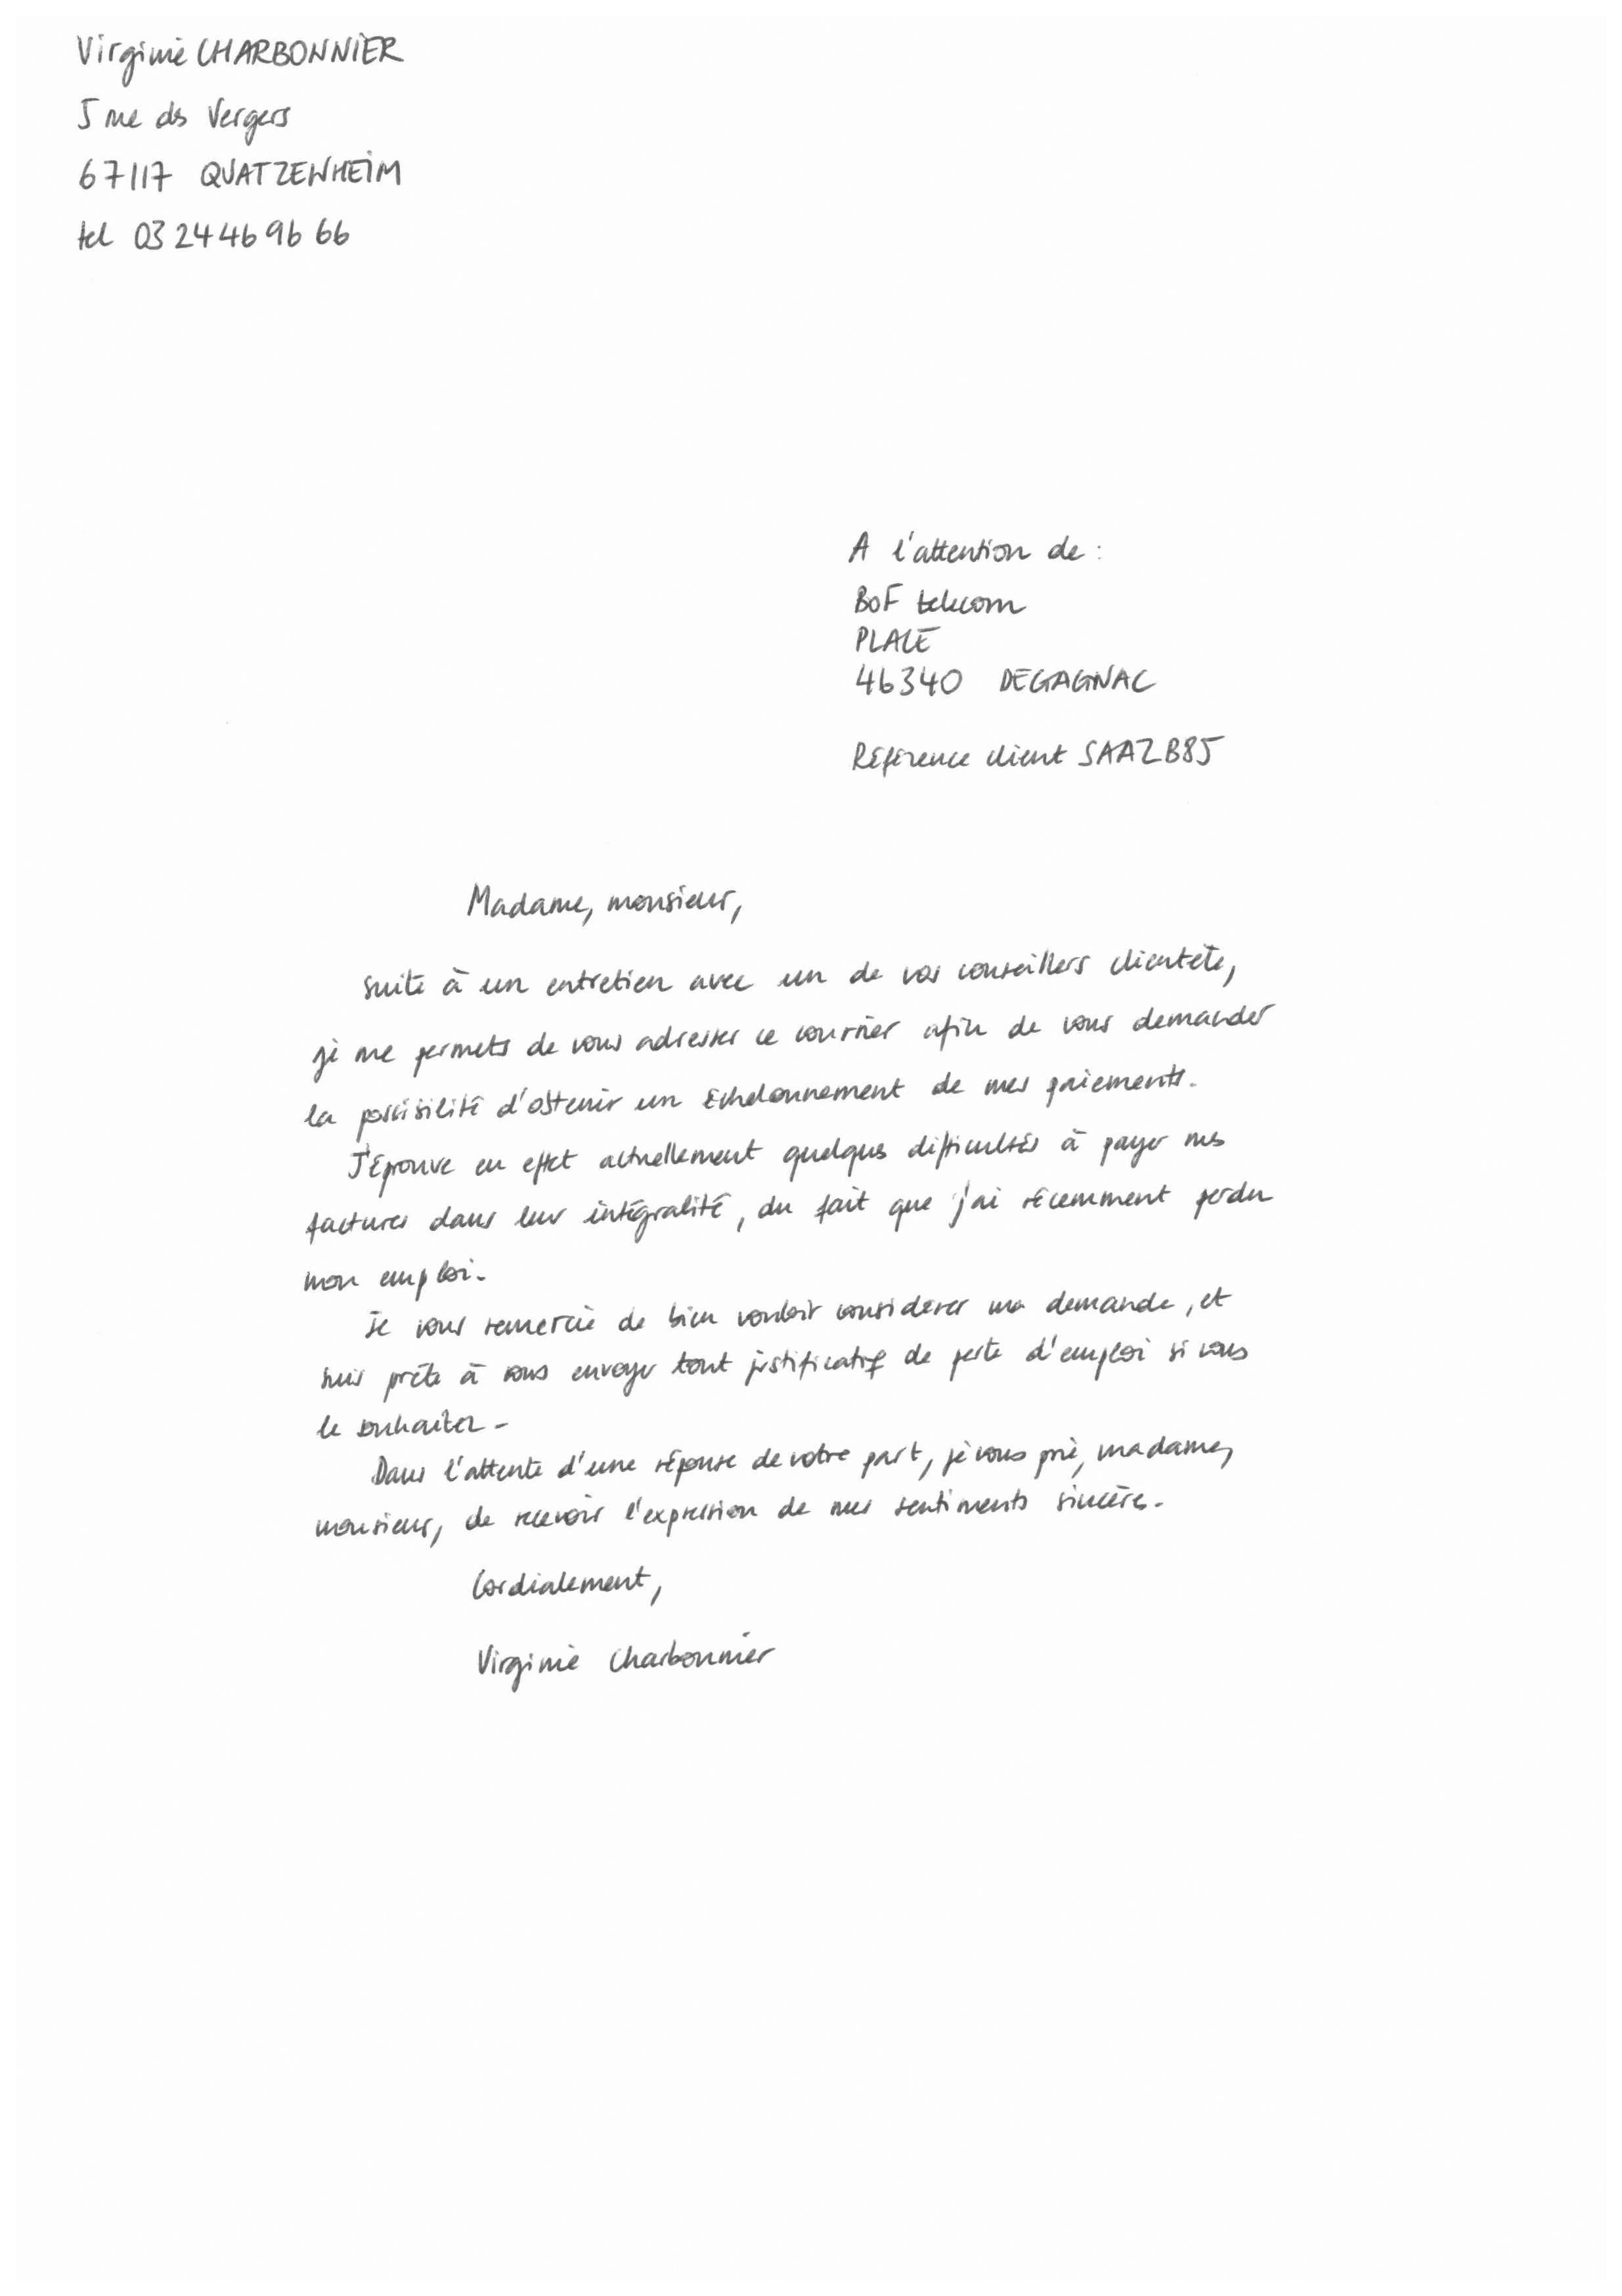 Virginie CHARBONNIER
5 rue des Vergers
67117 QUATZENHEIM
tel 03 24 46 96 66
A l'attention de :
BoF telecom
PLACE
46340 DEGAGNAC
Référence client SAAZB85
Madame, monsieur,
suite à un entretien avec un de vos conseillers clientèle,
je me permets de vous adresser ce courrier afin de vous demander
la possibilité d'obtenir un échelonnement de mes paiements.
J'éprouve en effet actuellement quelques difficultés à payer mes
factures dans leur intégralité, du fait que j'ai récemment perdu
mon emploi.
Je vous remercie de bien vouloir considérer ma demande, et
suis prête à vous envoyer tout justificatif de perte d'emploi si vous
le souhaitez.
Dans l'attente d'une réponse de votre part, je vous prie, madame,
monsieur, de recevoir l'expression de mes sentiments sincères.
Cordialement,
Virginie Charbonnier